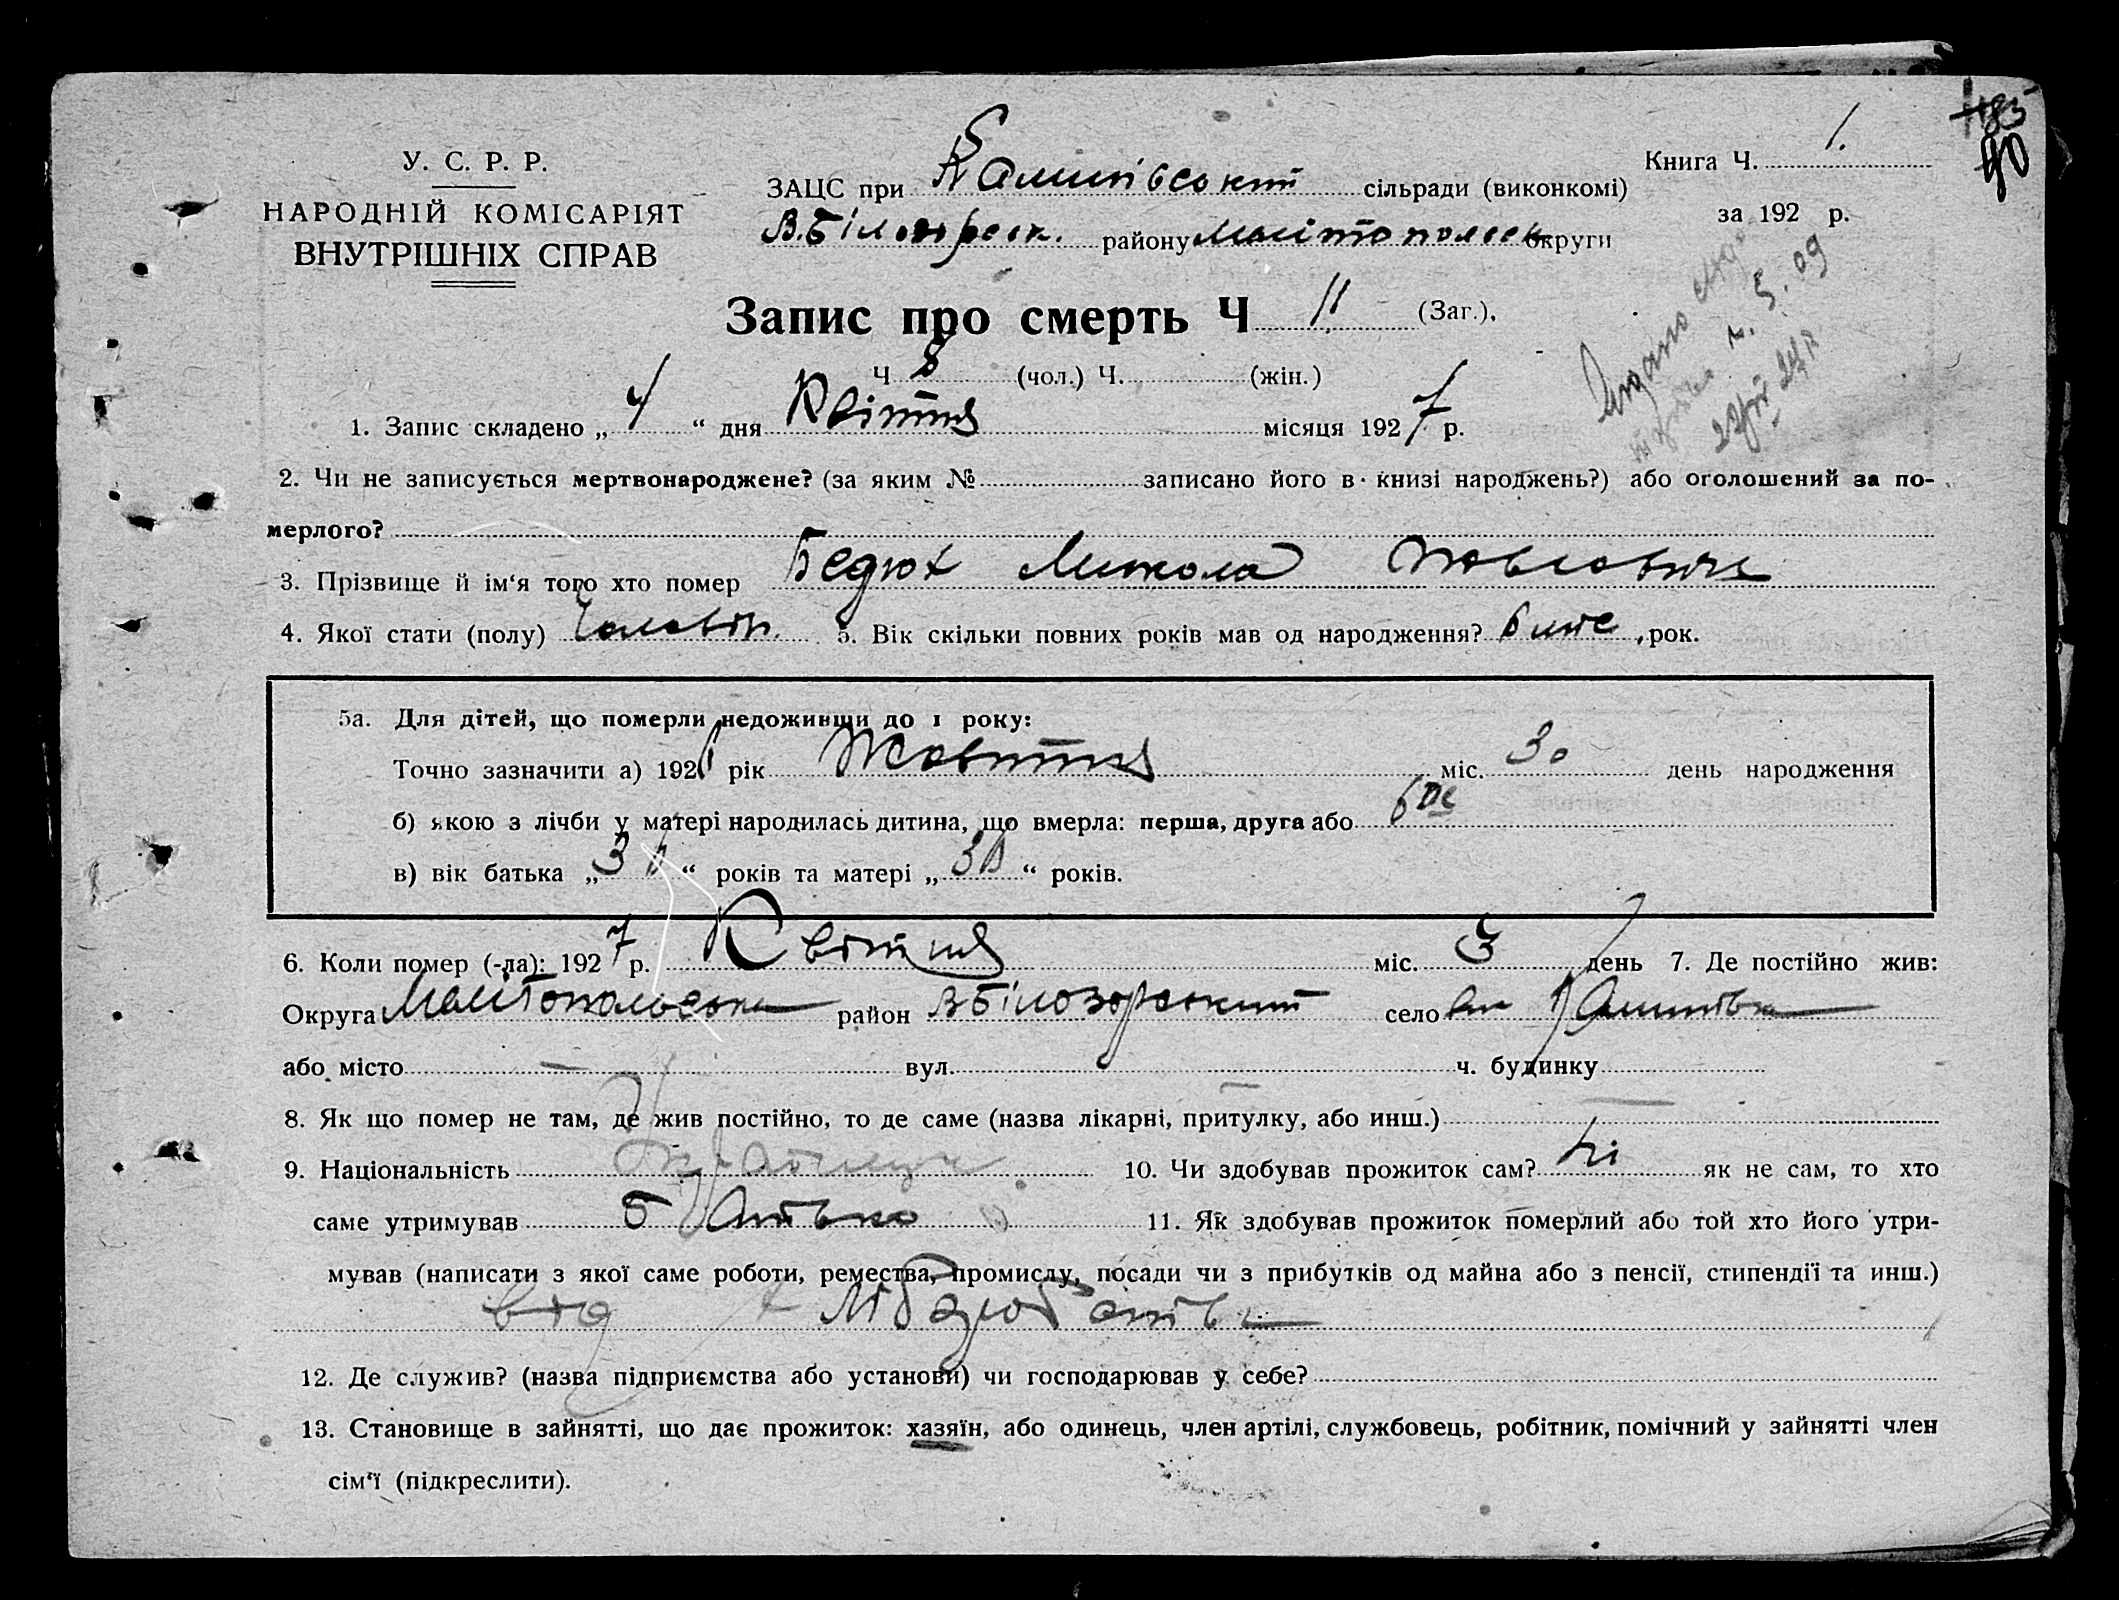 У. С. Р. Р.
НАРОДНІЙ КОМІСАРІЯТ
ВНУТРІШНІХ СПРАВ
ЗАЦС при сільради (виконкомі)
В. Білозорськ. району округи
Книга Ч. 1.
за 192 р.
40
Запис про смерть Ч 11 (Заг.).
Ч 8 (чол.) Ч. (жін.)
1. Запис складено „ 4 “ дня Квітня місяця 1927 р.
2. Чи не записується мертвонароджене? (за яким № записано його в книзі народжень?) або оголошений за по-
мерлого?
3. Прізвище й ім‘я того хто помер Бедюх Микола Павлович
4. Якої стати (полу) Чоловіч. 5. Вік скільки повних років мав од народження? 6 міс рок.
5а. Для дітей, що померли недоживши до 1 року:
Точно зазначити а) 1926 рік Жовтня міс. 30 день народження
б) якою з лічби у матері народилась дитина, що вмерла: перша, друга або
в) вік батька „ “ років та матері „ “ років.
6. Коли помер (-ла): 1927 р. Квітня міс. 3 день 7. Де постійно жив:
Округа район ВБілозорський село
або місто — вул. ч. будинку
8. Як що помер не там, де жив постійно, то де саме (назва лікарні, притулку, або инш.)
9. Національність Українець 10. Чи здобував прожиток сам? Ні як не сам, то хто
саме утримував Батько 11. Як здобував прожиток померлий або той хто його утри-
мував (написати з якої саме роботи, ремества, промислу, посади чи з прибутків од майна або з пенсії, стипендії та инш.)
від хліборобства
12. Де служив? (назва підприємства або установи) чи господарював у себе?
13. Становище в зайнятті, що дає прожиток: хазяїн, або одинець, член артілі, службовець, робітник, помічний у зайнятті член
сім‘ї (підкреслити).